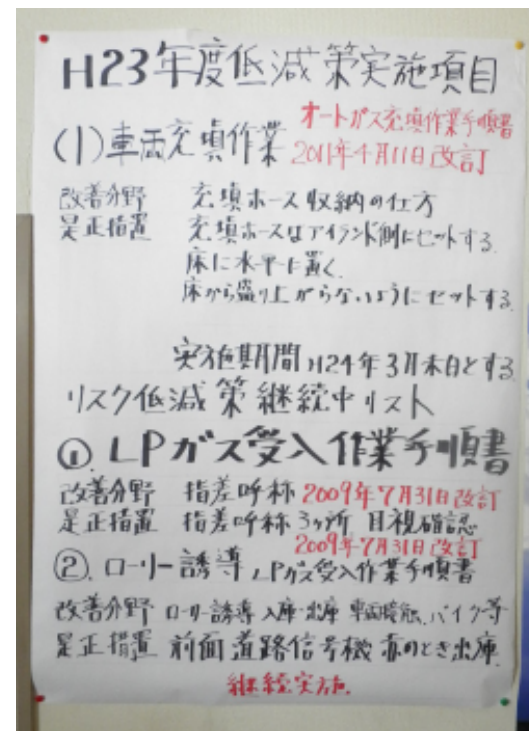 H23年度低減策実施項目
オートガス充填作業手順書
(1)車両充填作業 2011年4月11日改訂
改善分野 充填ホース収納の仕方
是正措置 充填ホースはアイランド側にセットする.
床に水平に置く.
床から盛り上がらないようにセットする.
実施期間H24年3月末日とする
リスク低減策継続中リスト
①.LPガス受入作業手順書
改善分野 指差呼称 2009年7月31日改訂
是正措置 指差呼称3ヶ所 目視確認
2009年7月31日改訂
②.ローリー誘導 LPガス受入作業手順書
改善分野 ローリー誘導 入庫・出庫 車両接触、バイク等
是正措置 前面道路信号機 赤のとき出庫.
継続実施.